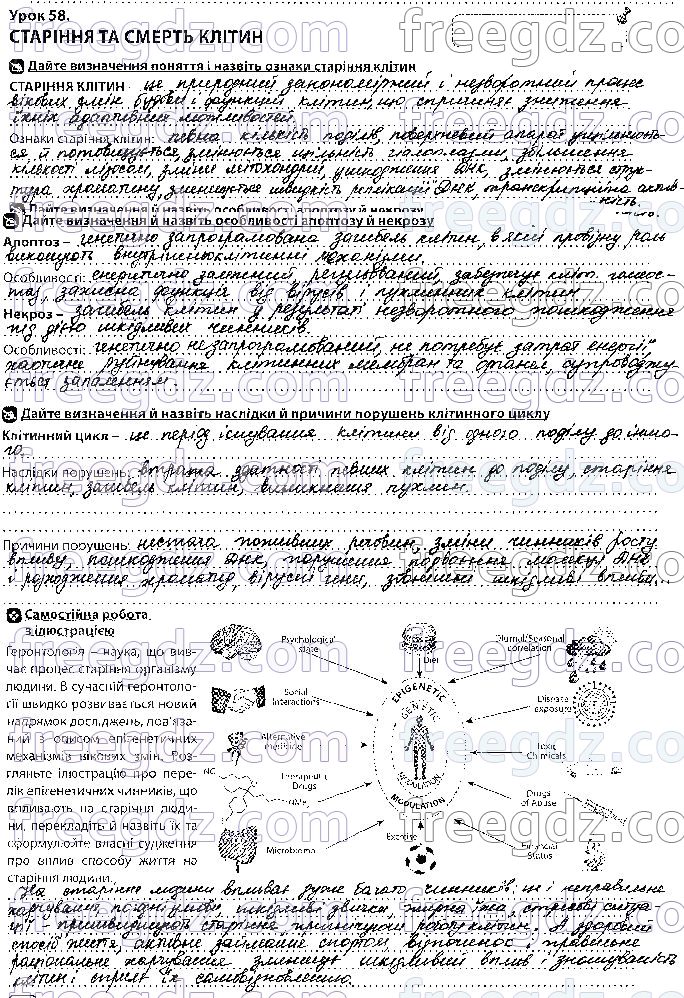 freegdz.com
Урок 58.
СТАРІННЯ ТА СМЕРТЬ КЛІТИН
Дайте визначення поняття і назвіть ознаки старіння клітин
СТАРІННЯ КЛІТИН – це природний закономірний і незворотний процес
вікових змін будови і функцій клітин, що спричиняє зниження
їхніх адаптивних можливостей.
Ознаки старіння клітин: певна кількість поділів, поверхневий апарат ущільнюєть-
ся й потовщується, змінюється щільність гіалоплазми, збільшення
кількості лізосом, зміни мітохондрій, ушкодження ДНК, змінюється струк-
тура хроматину, зменшується швидкість реплікації ДНК, транскрипційна актив-
ність.
Дайте визначення й назвіть особливості апоптозу й некрозу
Дайте визначення й назвіть особливості апоптозу й некрозу
Апоптоз – генетично запрограмована загибель клітин, в якій провідну роль
виконують внутрішньоклітинні механізми.
Особливості: енергетично залежний, регульований, забезпечує кліт. гомеос-
таз, захисна функція від вірусів і пухлинних клітин
Некроз – загибель клітин у результаті незворотного пошкодження
під дією шкідливих чинників.
Особливості: генетично незапрограмований, не потребує затрат енергії,
хаотичне руйнування клітинних мембран та органел, супроводжу-
ється запаленням.
Дайте визначення й назвіть наслідки й причини порушень клітинного циклу
Клітинний цикл – це період існування клітини від одного поділу до іншо-
го.
Наслідки порушень: втрата здатності певних клітин до поділу, старіння
клітин, загибель клітин, виникнення пухлин.
Причини порушень: нестача поживних речовин, зміни чинників росту
впливу, пошкодження ДНК, порушення подвоєння молекул ДНК
і розходження хроматид, вірусні гени, зовнішні шкідливі впливи...
Самостійна робота
з ілюстрацією
Геронтологія – наука, що вив-
чає процес старіння організму
людини. В сучасній геронтоло-
гії швидко розвивається новий
напрямок досліджень, пов'яза-
ний з описом епігенетичних
механізмів вікових змін. Роз-
гляньте ілюстрацію про пере-
лік епігенетичних чинників, що
впливають на старіння люди-
ни, перекладіть й назвіть їх та
сформулюйте власні судження
про вплив способу життя на
старіння людини.
Psychological
state
Diet
Diurnal/Seasonal
correlation
Social
Interactions
Disease
exposure
Alternative
medicine
Toxic
Chemicals
Therapeutic
Drugs
Drugs
of Abuse
Microbiome
Exercise
Financial
Status
EPIGENETIC
GENETIC
MODULATION
MODULATION
На старіння людини впливає дуже багато чинників: це і неправильне
харчування, погані умови, шкідливі звички, жирна їжа, стресові ситуа-
ції – пришвидшують старіння, пригнічуючи роботу клітин. А здоровий
спосіб життя, активне займання спортом, відпочинок, правильне
раціональне харчування зменшує шкідливий вплив і зношуваність
клітин і сприяє їх самовідновленню.